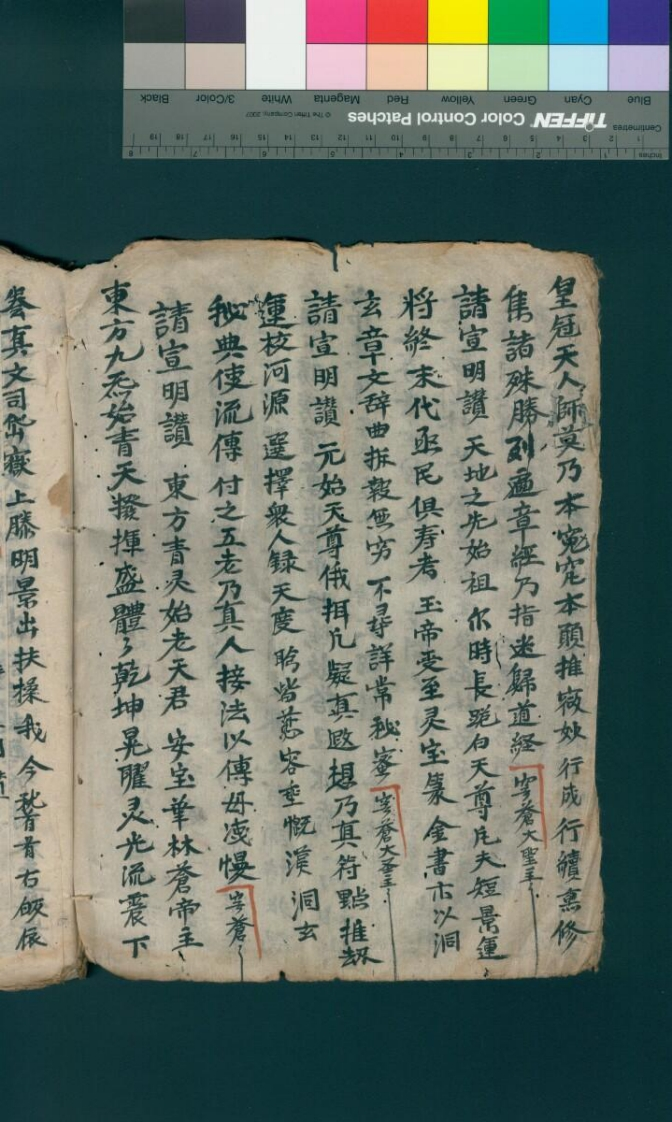 皇冠天人師莫乃本冤宄本願推寂妙行成行續熏修
集諸殊勝列遍章經乃指迷歸道経穹蒼大聖主
請宣明讚天地之先始祖尒時長跪白天尊凡夫短景運
將終末代丞民俱寿考玉帝受至灵宝篆金書市以洞
玄章文辞曲拆義無穷不尋詳常秘蜜穹蒼大圣主
請宣明讚元始天尊俄拜凢凝真遐想乃真符點推刧
運校河源選擇衆人録天度慈容垂慨漢洞玄
秘典使流傳付之五老乃真人接法以傳毋凌慢穹蒼
請宣明讚東方青灵始老天君安宝華林蒼帝主
東方九炁始青天撥揮盛體乾坤晃曜灵光流震下
真文司岱嶽上勝明景出扶搡我今𩒨首右皈依
TIFFEN Color Control Patches
© The Tiffen Company, 2007
Centimetres
Inches
Blue Cyan Green Yellow Red Magenta White 3/Color Black